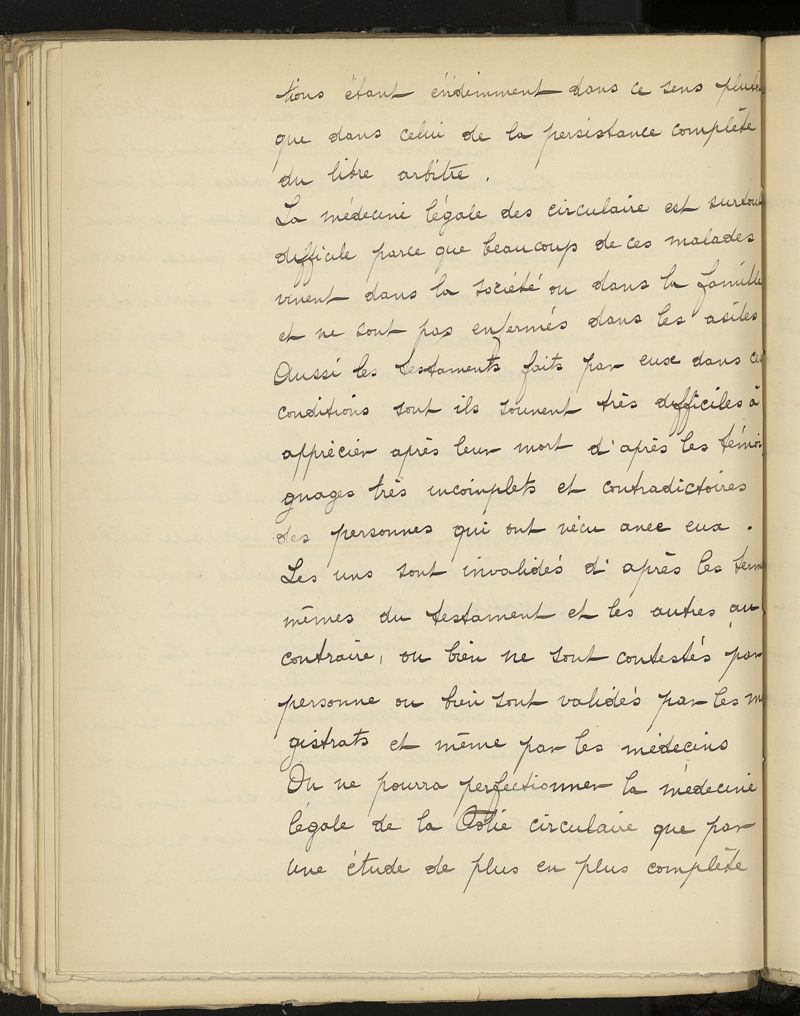 tions étant évidemment dans ce sens plutôt
que dans celui de la persistance complète
du libre arbitre.
La médecine légale des circulaire est surtout
difficile parce que beaucoup de ces malades
vivent dans la société ou dans la famille
et ne sont pas enfermés dans les asiles
Aussi les testaments faits par eux dans ces
conditions sont ils souvent très difficiles à
apprécier après leur mort d'après les témoi
gnages très incomplets et contradictoires
des personnes qui ont vécu avec eux.
Les uns sont invalidés d'après les term
mêmes du testament et les autres au
contraire, ou bien ne sont contestés par
personne ou bien sont validés par les m
gistrats et même par les médecins
On ne pourra perfectionner la médecine
légale de la folie circulaire que par
une étude de plus en plus complète